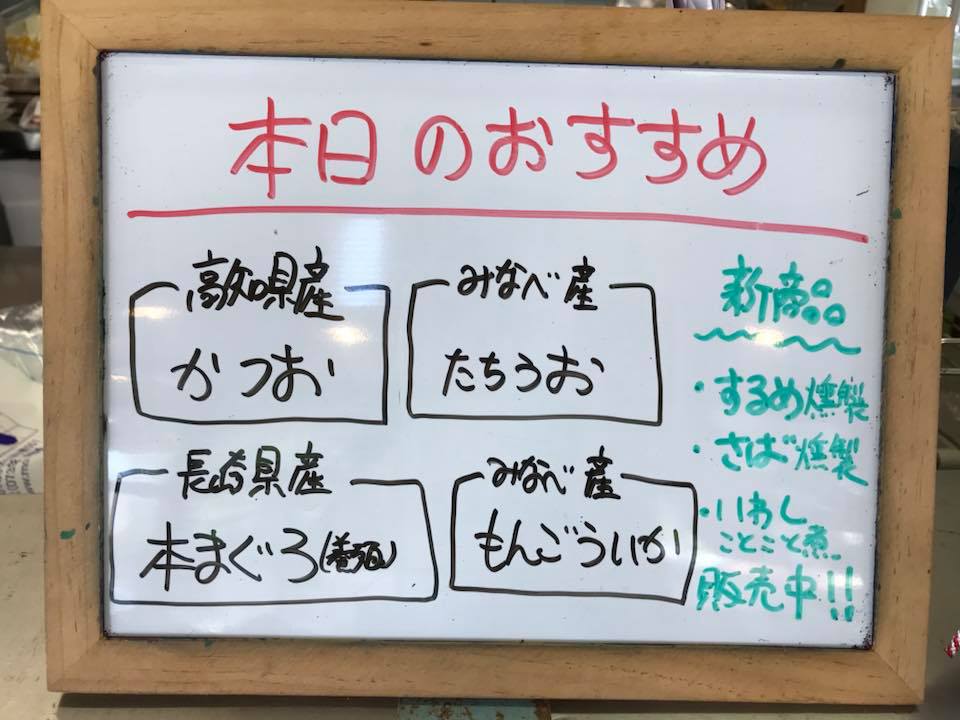 本日のおすすめ
高知県産
かつお
みなべ産
たちうお
長崎県産
本まぐろ(養殖)
みなべ産
もんごういか
新商品
・するめ燻製
・さば燻製
・いわし
ことこと煮
販売中!!